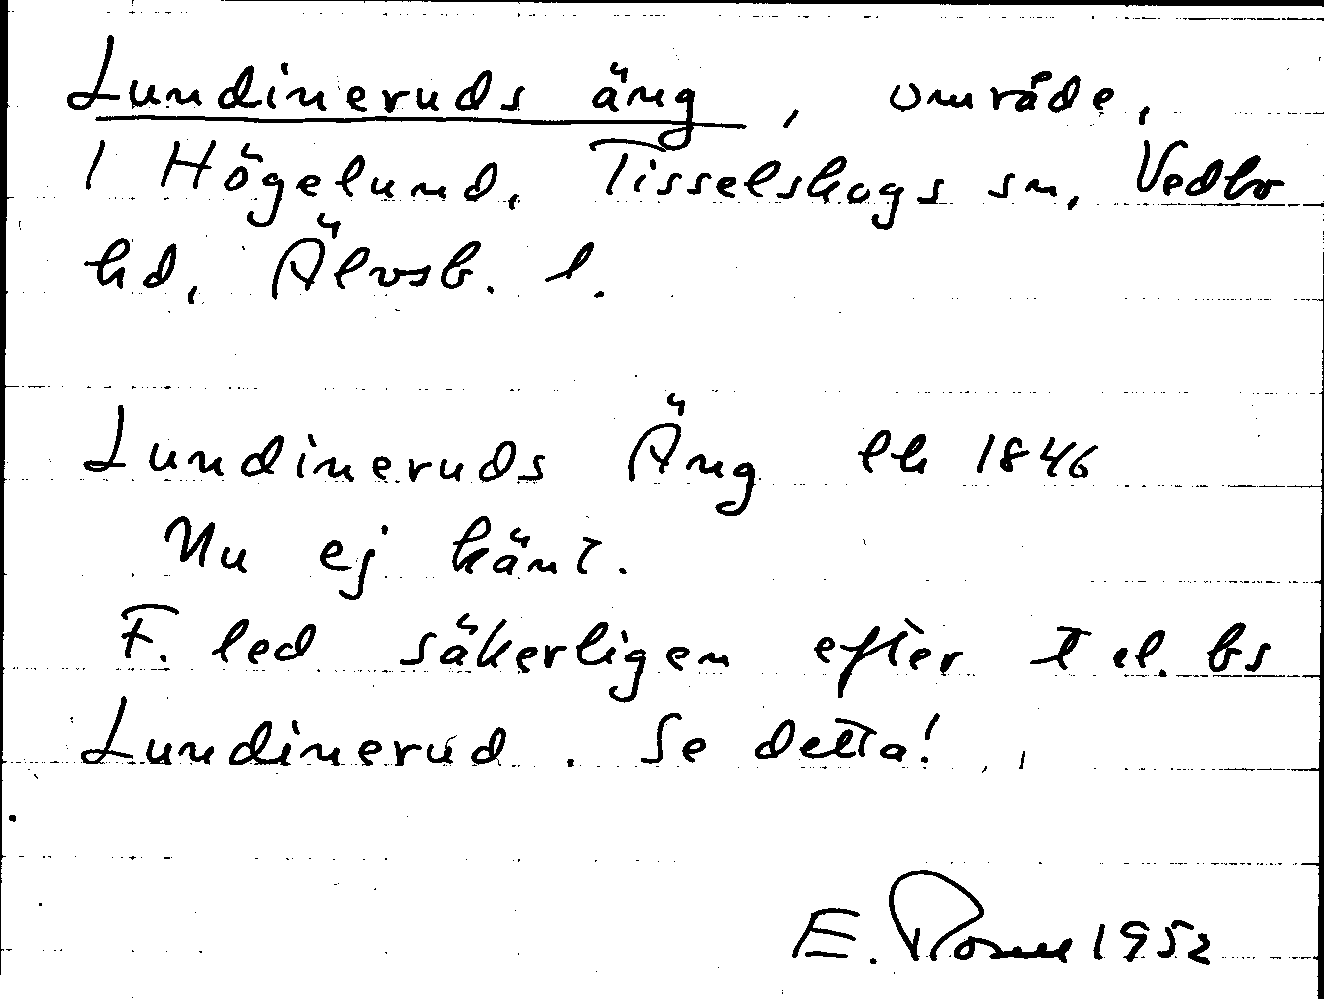 Lundineruds äng, område,
I Högelund, Tisselskogs sn, Vedbo
hd, Älvsb. l.
Lundineruds Äng lh 1846
Nu ej känt.
F. led säkerligen efter t el. bs
Lundinerud. Se detta!
E. Rosell 1952